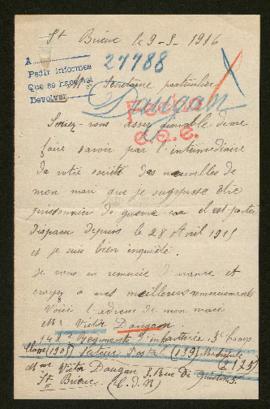 St Brieuc le 9-3-1916
27788
A
Pedir informes
Que se
Devolver
Mr Secretaire particulier
Daugan
Seriez-vous assez aimable de me
faire savoir par l'intermédiaire
de votre société des nouvelles de
mon mari que je suppose être
prisonnier de guerre car il est porté
disparu depuis le 28 Avril 1915
et je suis bien inquiète.
je vous en remercie d'avance et
croyez à mes meilleurs remerciements
Voici l'adresse de mon mari
Mr Victor Daugan
148e Regiments d'infanterie 3e
Classe (1905) Secteur Postal (139)
(2123)
Mme Victor Daugan 5 Rue de
St Brieuc (C.d.N)